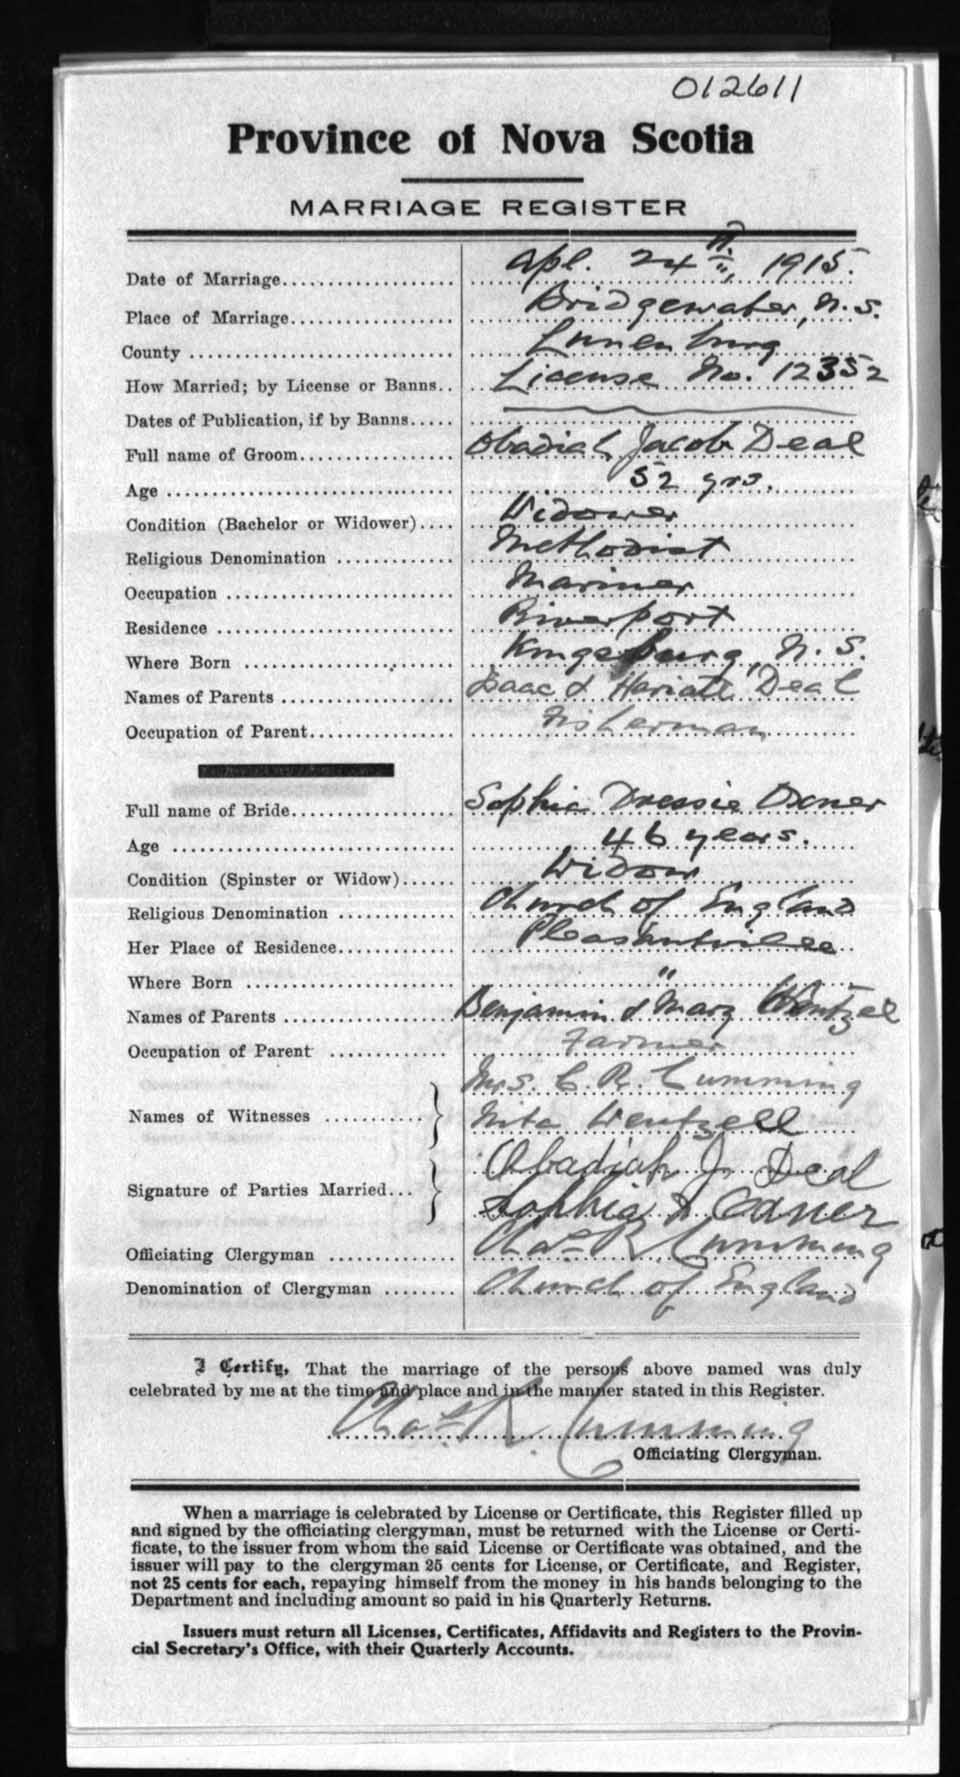 012611
Province of Nova Scotia
MARRIAGE REGISTER
Date of Marriage Apl. 24th, 1915.
Place of Marriage Bridgewater, N.S.
County Lunenburg
How Married; by License or Banns License No. 12352
Dates of Publication, if by Banns
Full name of Groom Obadiah Jacob Deal
Age 52 yrs.
Condition (Bachelor or Widower) Widower
Religious Denomination Methodist
Occupation Mariner
Residence Riverport
Where Born Kingsburg, N.S.
Names of Parents Isaac & Hariate Deal
Occupation of Parent Fisherman
Full name of Bride Sophia Dressie Oxner
Age 46 years.
Condition (Spinster or Widow) Widow
Religious Denomination Church of England
Her Place of Residence Pleasantville
Where Born "
Names of Parents Benjamin & Mary Wentzel
Occupation of Parent Farmer
Mrs. C. R. Cumming
Names of Witnesses Nita Wentzell
Obadiah J. Deal
Signature of Parties Married Sophia D Oxner
Officiating Clergyman Chas R. Cumming
Denomination of Clergyman Church of England
I Certify, That the marriage of the persons above named was duly
celebrated by me at the time and place and in the manner stated in this Register.
Chas R. Cumming
Officiating Clergyman.
When a marriage is celebrated by License or Certificate, this Register filled up
and signed by the officiating clergyman, must be returned with the License or Certi-
ficate, to the issuer from whom the said License or Certificate was obtained, and the
issuer will pay to the clergyman 25 cents for License, or Certificate, and Register,
not 25 cents for each, repaying himself from the money in his hands belonging to the
Department and including amount so paid in his Quarterly Returns.
Issuers must return all Licenses, Certificates, Affidavits and Registers to the Provin-
cial Secretary's Office, with their Quarterly Accounts.